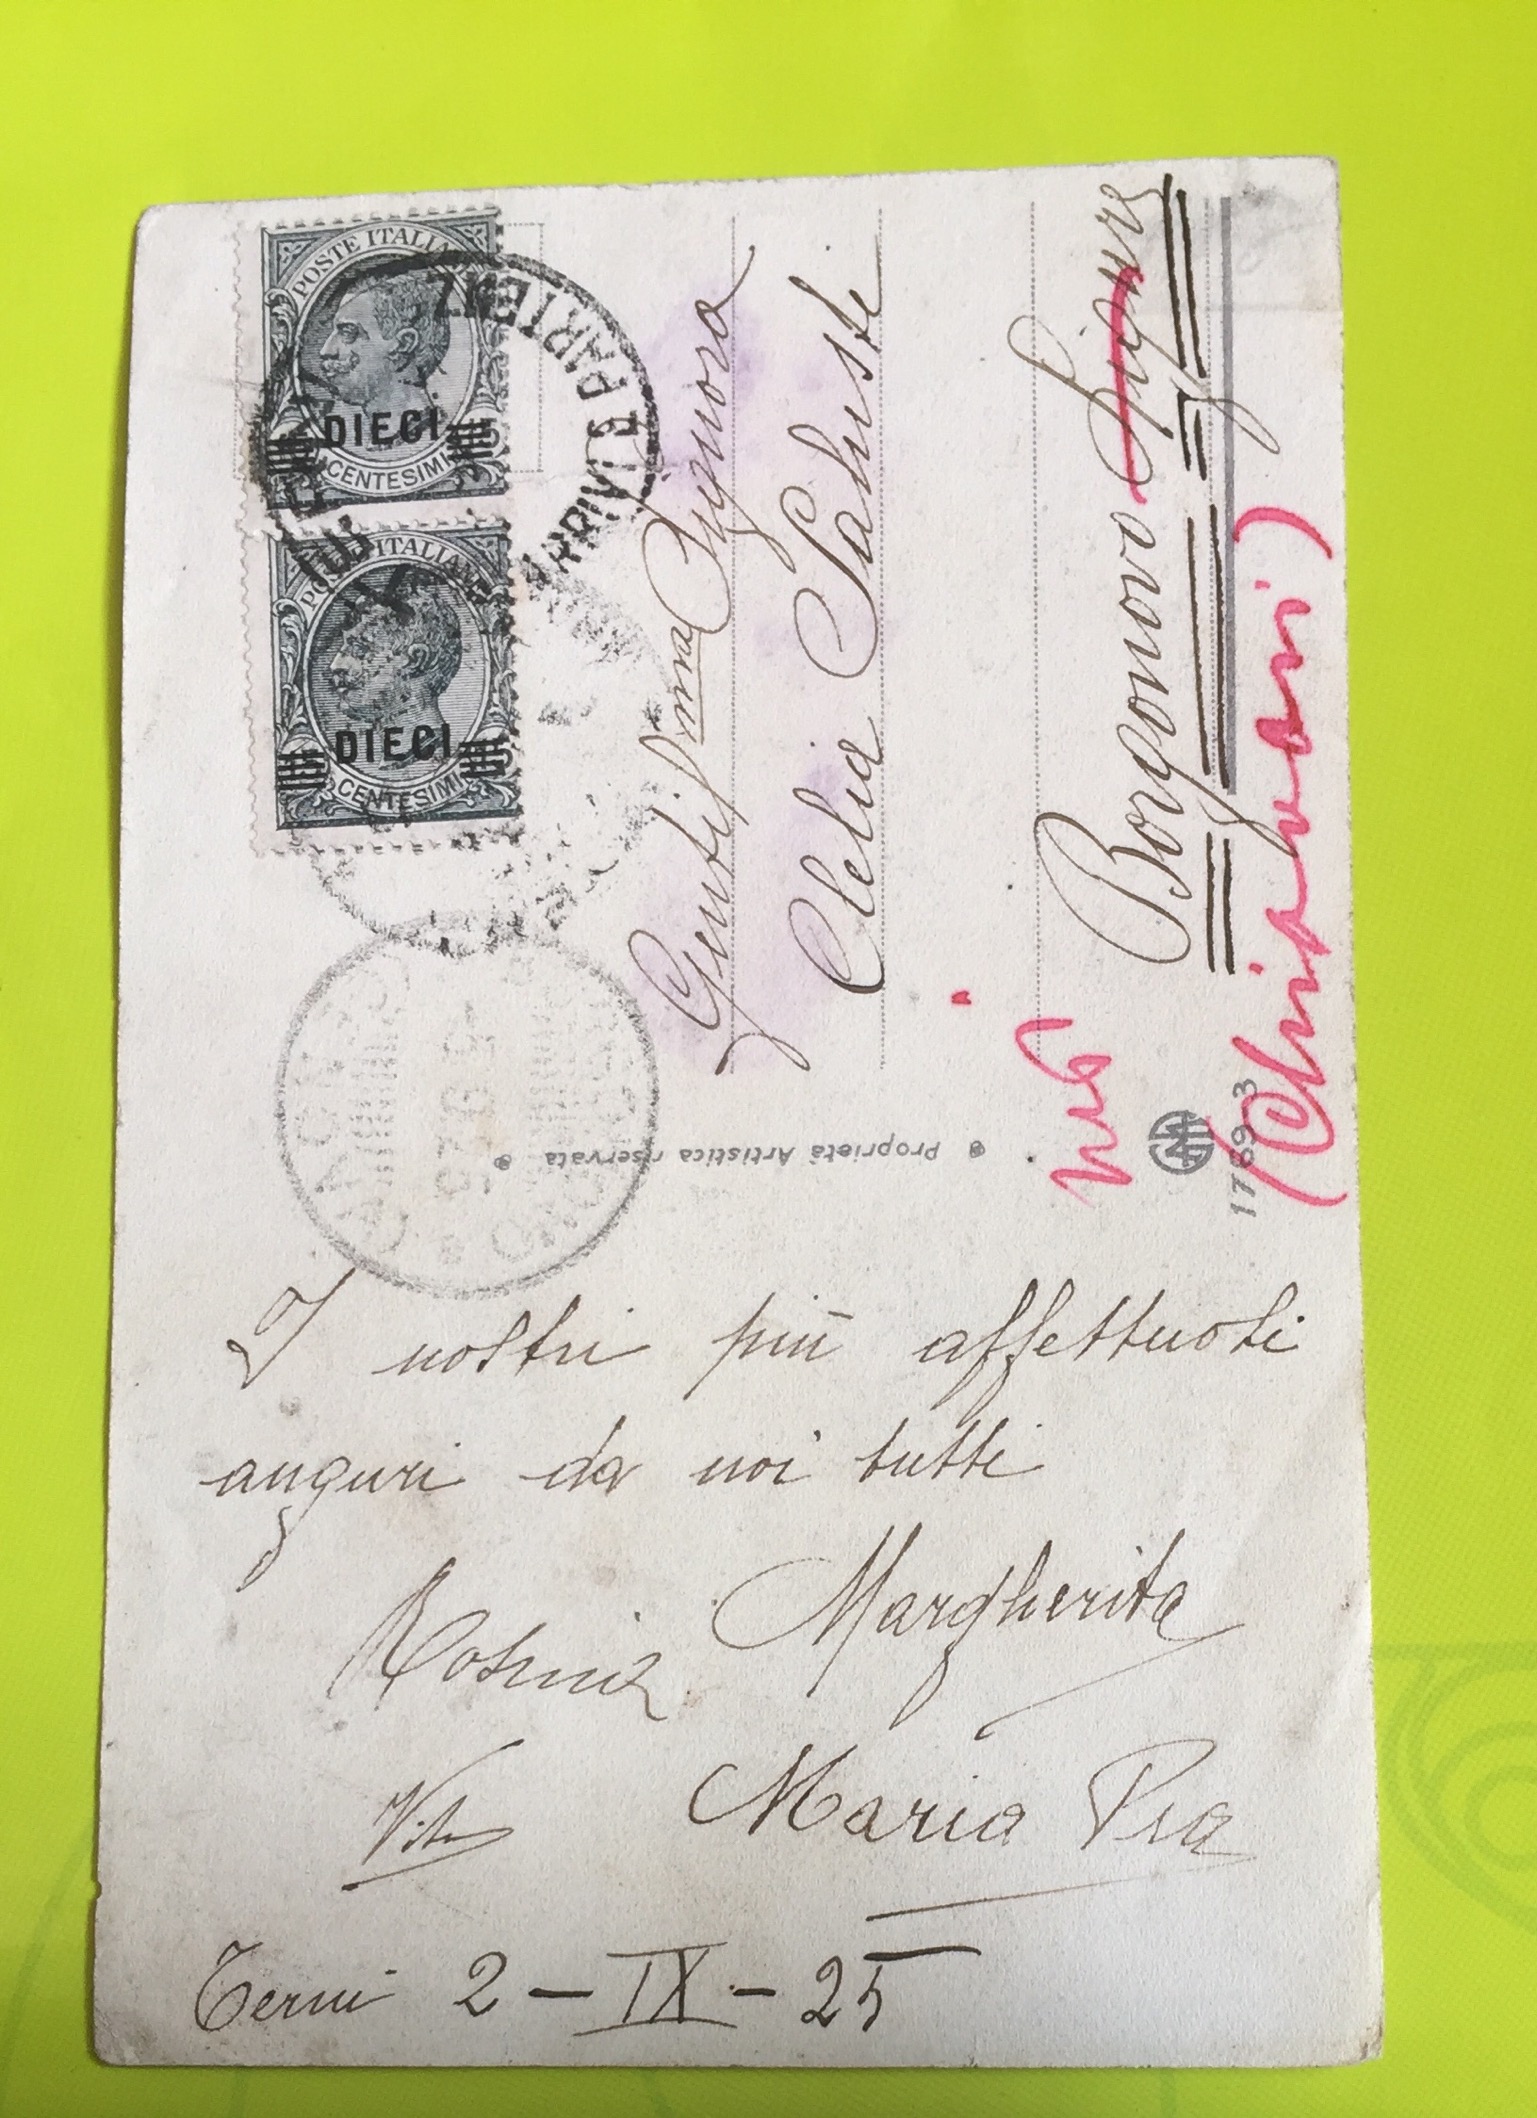 POSTE ITALIANE
DIECI
CENTESIMI
POSTE ITALIANE
DIECI
CENTESIMI
ARRIVI E PARTENZ
Gentilma Signora
Clelia Saluste
Borgonovo Ligure
(Chiavari)
Proprietà Artistica riservata
1769 3
I nostri più affettuosi
auguri da noi tutti
Margherita
Rosina
Maria Pia
Terni 2-IX-25